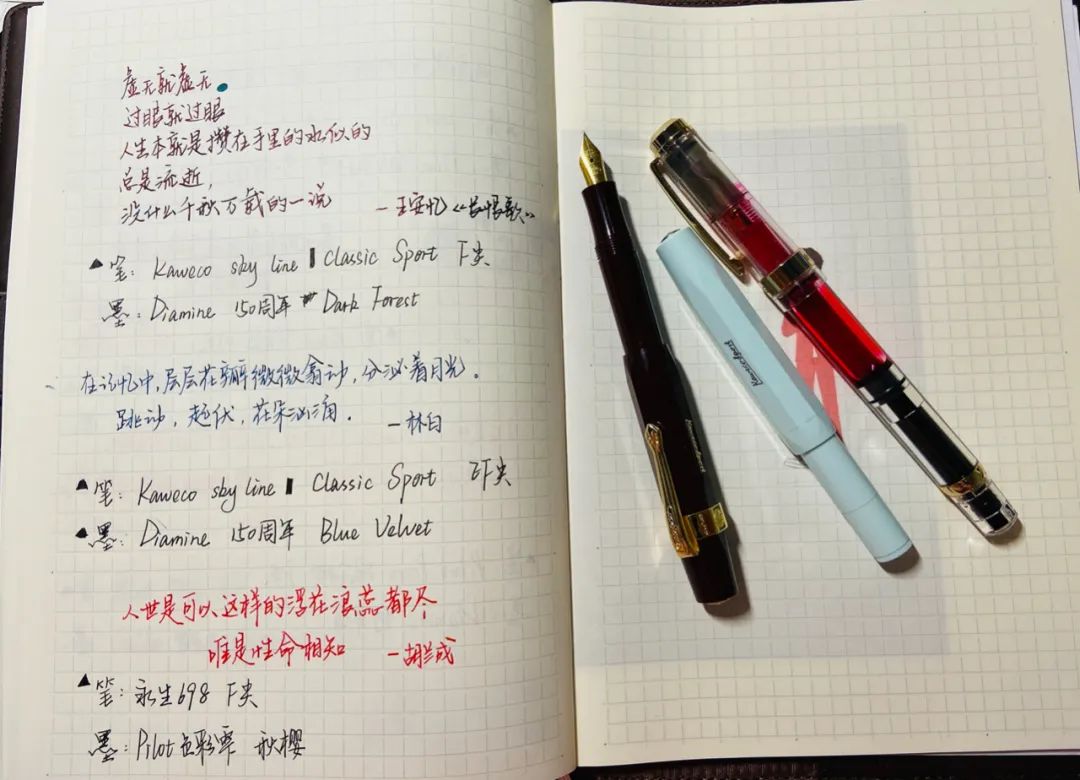 虚无就虚无
过眼就过眼
人生本就是攒在手里的水似的
总是流逝,
没什么千秋万载的一说 —王安忆《长恨歌》
▲笔: Kaweco sky line classic Sport F尖
墨: Diamine 150周年 Dark Forest
在记忆中,层层花瓣微微翕动,分泌着月光。
跳动,起伏,花朵汹涌. —林白
▲笔: Kaweco sky line Classic Sport EF尖
▲墨: Diamine 150周年 Blue Velvet
人世是可以这样的浮花浪蕊都尽
唯是性命相知 —胡兰成
▲笔: 永生698 F尖
墨: Pilot色彩雫 秋樱
Kaweco Sport